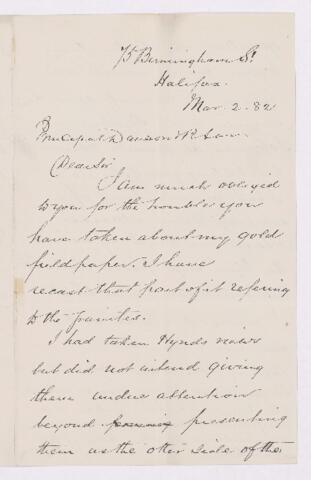 75 Birmingham St
Halifax.
Mar. 2. 82
Principal Dawson
Dear Sir
I am much obliged
to you for the troubles you
have taken about my gold
field paper. I have
recast that part of it refering
to the granites.
I had taken Hynds views
but did not intend giving
them undue attention
beyond presenting
them as the other side of the